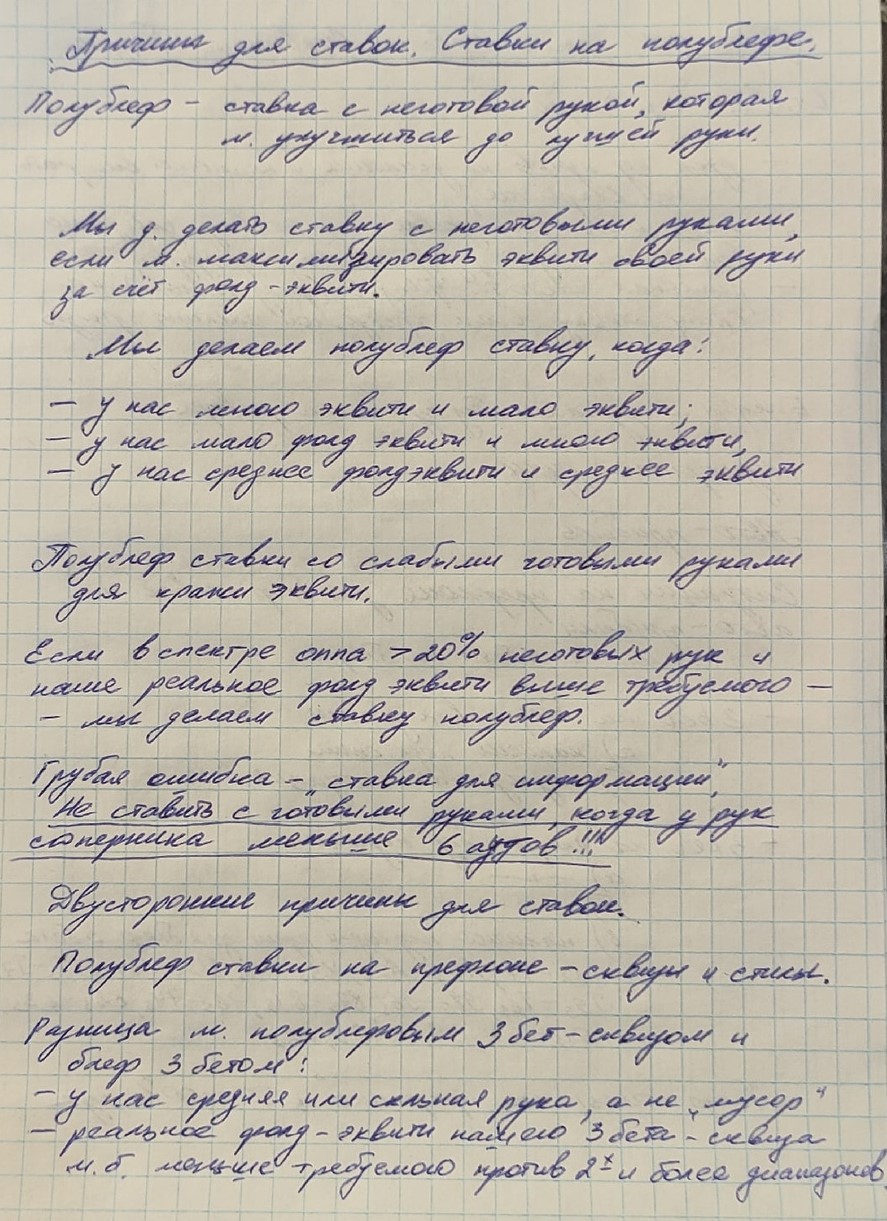 Причины для ставок. Ставки на полублефе.
Полублеф – ставка с неготовой рукой, которая
м. улучшиться до лучшей руки.
Мы д. делать ставку с неготовыми руками,
если м. максимизировать эквити своей руки
за счёт фолд-эквити.
Мы делаем полублеф ставку, когда:
– у нас много эквити и мало эквити;
– у нас мало фолд эквити и много эквити,
– у нас среднее фолдэквити и среднее эквити
Полублеф ставки со слабыми готовыми руками
для кражи эквити.
Если в спектре оппа >20% неготовых рук и
наше реальное фолд эквити выше требуемого –
– мы делаем ставку полублеф.
Грубая ошибка – „ставка для информации",
Не ставить с готовыми руками, когда у рук
соперника меньше 6 аутов!!!
Двусторонние причины для ставок.
Полублеф ставки на префлопе – сквизы и стилы.
Разница м. полублефовым 3 бет-сквизом и
блеф 3 бетом:
– у нас средняя или сильная рука, а не „мусор"
– реальное фолд-эквити нашего 3 бета-сквиза
м.б. меньше требуемого против 2х и более диапазонов.